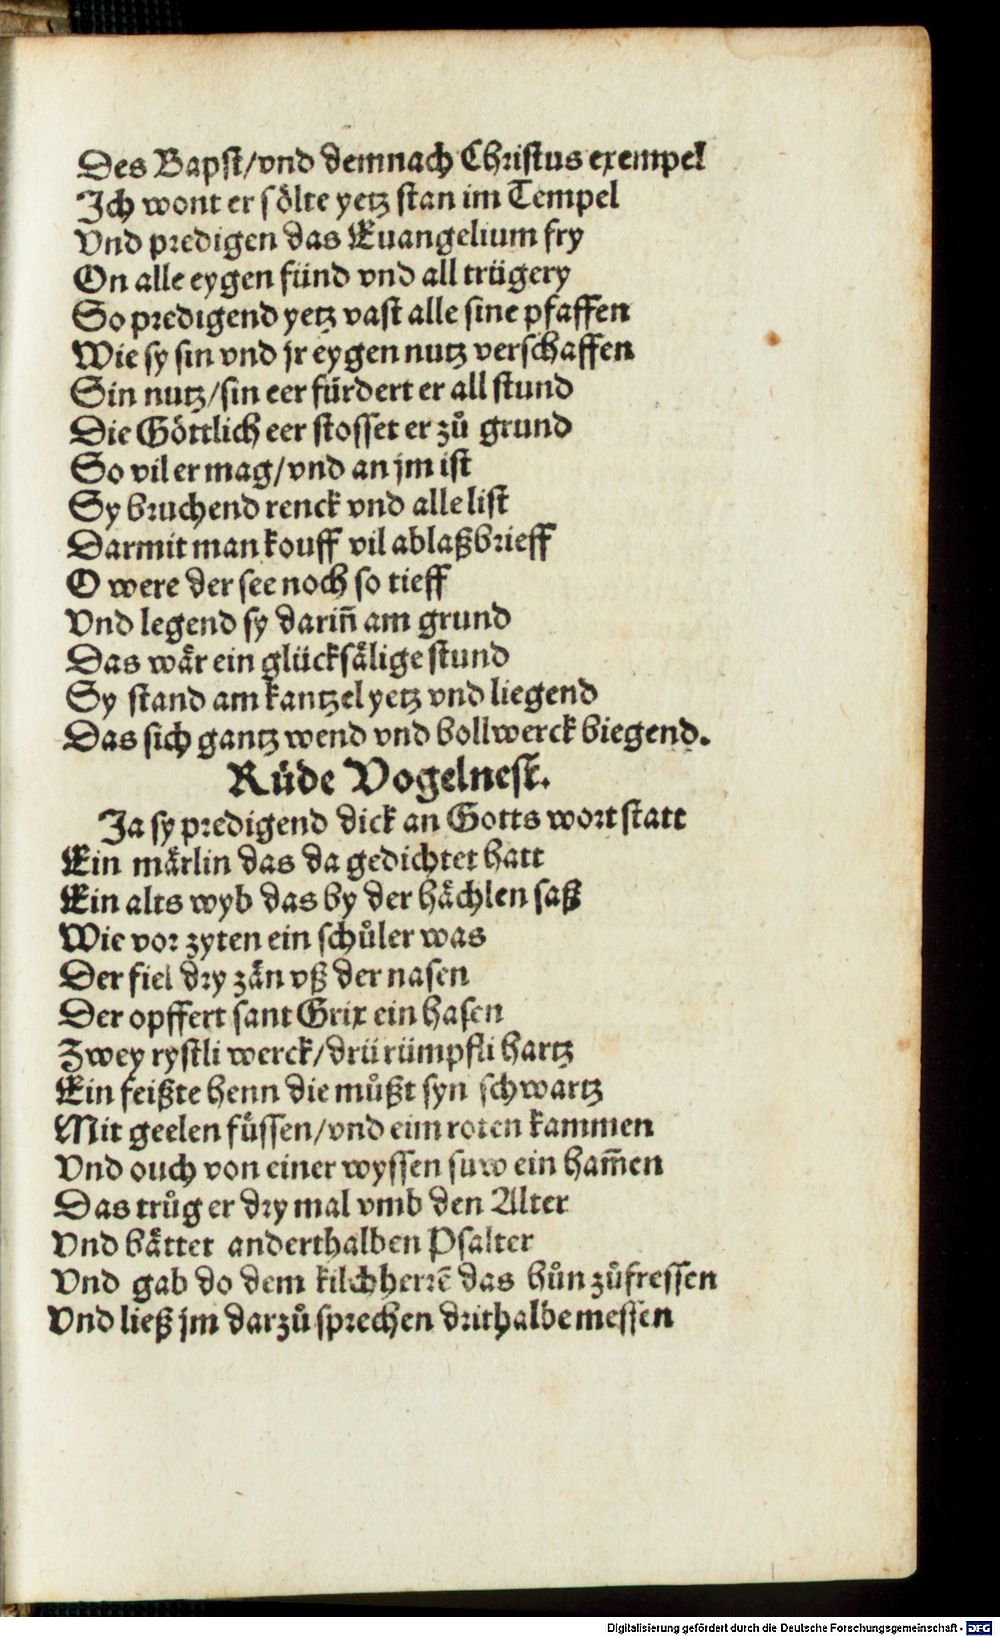 Des Bapst/vnd demnach Christus exempel
Ich wont er sölte yetz stan im Tempel
Vnd predigen das Euangelium fry
On alle eygen fünd vnd all trügery
So predigend yetz vast alle sine pfaffen
Wie sy sin vnd jr eygen nutz verschaffen
Sin nutz/sin eer fürdert er all stund
Die Göttlich eer stosset er zů grund
So vil er mag/vnd an jm ist
Sy bruchend renck vnd alle list
Darmit man kouff vil ablaßbrieff
O were der see noch so tieff
Vnd legend sy dariñ am grund
Das wår ein glücksålige stund
Sy stand am kantzel yetz vnd liegend
Das sich gantz wend vnd bollwerck biegend.
Rüde Vogelnest.
Ja sy predigend dick an Gotts wort statt
Ein mårlin das da gedichtet hatt
Ein alts wyb das by der håchlen saß
Wie vor zyten ein schůler was
Der fiel dry zån vß der nasen
Der opffert sant Grix ein hasen
Zwey rystli werck/drü rümpfli hartz
Ein feißte henn die můßt syn schwartz
Mit geelen füssen/vnd eim roten kammen
Vnd ouch von einer wyssen suw ein ham̃en
Das trůg er dry mal vmb den Alter
Vnd båttet anderthalben Psalter
Vnd gab do dem kilchherrē das hůn zůfressen
Vnd ließ jm darzů sprechen drithalbe messen
Digitalisierung gefördert durch die Deutsche Forschungsgemeinschaft - DFG